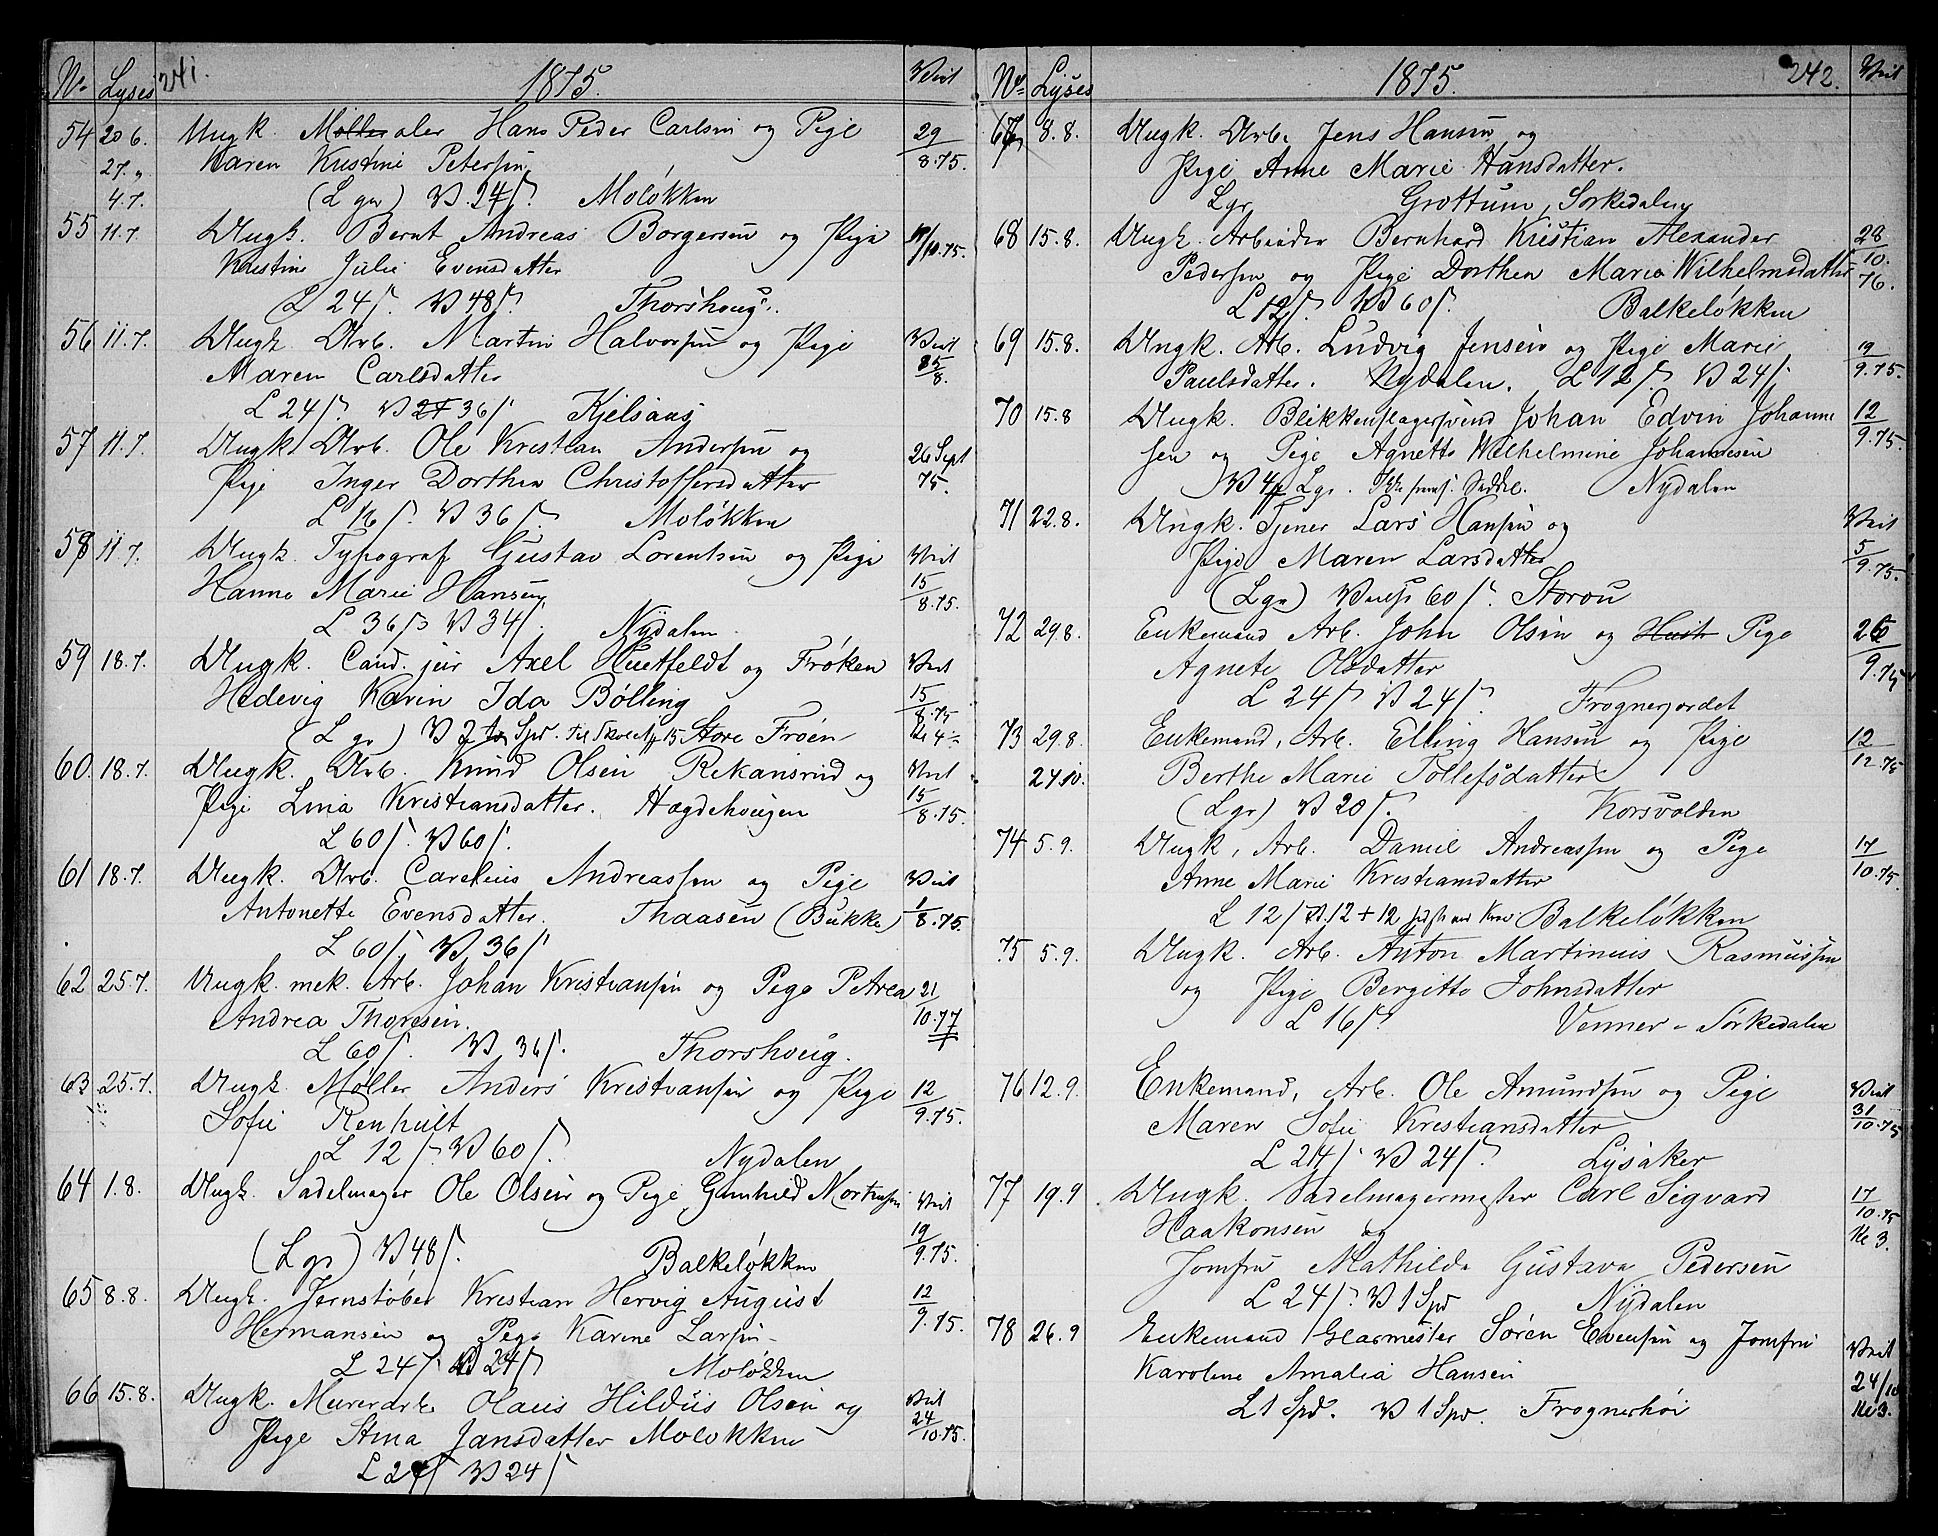 No. Lyses 241. 1875. Viet
54 20 6. Ungk. Maler Hans Peder Carlsen og Pige 29/8.75.
27. " Karen Kristine Petersen
4.7. (L gr) V 24 ſ. Moløkken
55 11.7. Ungk. Bernt Andreas Borgersen og Pige /10.75.
Kristine Julie Evensdatter
L 24 ſ. V 48 ſ. Thorshoug.
56 11.7. Ungk. Arb. Martin Halvorsen og Pige Viet
Maren Carlsdatter 15/8.
L 24 ſ. V 36 ſ Kjelsaas
57 11.7. Ungk. Arb. Ole Kristian Andersen og 26 Sept
Pige Inger Dorthea Christoffersdatter 75.
L 16 ſ. V 36 ſ. Moløkken
58 11.7. Ungk. Typograf Gustav Lorentsen og Pige Viet
Hanne Marie Hansen 15/8.75.
L 36 ſ V 34 ſ. Nydalen
59 18.7. Ungk. Cand. jur Axel Huitfeldt og Frøken Viet
Hedevig Karin Ida Bølling 15/8.75
(L gr) V 2 Spd. Til Skole 15 Store Frøen Kl 4
60. 18.7. Ungk. Arb. Knud Olsen Rekansrud og Viet
Pige Lina Kristiansdatter. Hægdehougen 15/8.75.
L 60 ſ. V 60 ſ.
61 18.7. Ungk. Arb. Carelius Andreassen og Pige Viet
Antonette Evensdatter. Thaasen (Bukke) 1/8.75.
L 60 ſ. V 36 ſ
62 25.7. Ungk. mek. Arb. Johan Kristiansen og Pige Petrea 21/10.77
Andrea Thoresen.
L 60 ſ. V 36 ſ. Thorshoug.
63 25.7. Ungk. Møller Anders Kristiansen og Pige 12/9.75.
Sofie Renhult
L 12 ſ. V 60 ſ. Nydalen
64 1.8. Ungk. Sadelmager Ole Olsen og Pige Gunhild Mortensen Viet
(L gr) V 48 ſ. Balkeløkken 19/9.75.
65 8.8. Ungk. Jernstøber Kristian Hervig August 12/9.75.
Hermansen og Pige Karine Larsen
L 24 ſ. V 24 ſ Moløkken
66 15.8. Ungk. Murerarb. Olaus Hildus Olsen og Viet
Pige Stina Jansdatter Moløkken 24/10.75.
L 24 ſ V 24 ſ
No. Lyses 1875. 242. Viet
67 8.8. Ungk. Arb. Jens Hansen og
Pige Anne Marie Hansdatter.
L gr Grøttum, Sørkedalen
68 15.8. Ungk. Arbeider Bernhard Kristian Alexander 28/10.
Pedersen og Pige Dorthea Marie Wilhelmsdatter 76.
L 12 ſ. V 60 ſ. Balkeløkken
69 15.8. Ungk. Arb. Ludvig Jensen og Pige Marie 19/9.75.
Paulsdatter. Nydalen. L 12 ſ. V 24 ſ
70 15.8 Ungk. Blikkenslagersvend Johan Edvin Johanne 12/9.75.
sen og Pige Agnette Wilhelmine Johannesen
L gr. Seddel. Nydalen
71 22.8. Ungk. Tjener Lars Hansen og Viet
Pige Maren Larsdatter 5/9.75.
(L gr) 60 ſ. Storøu
72 29.8. Enkemand Arb. John Olsen og Pige 26/9.75
Agnete Olsdatter
L 24 ſ V 24 ſ. Frognerjordet
73 29.8. Enkemand, Arb. Elling Hansen og Pige 12/12.75
24.10. Berthe Marie Tollefsdatter
(L gr) V 20 ſ. Korsvolden
74 5.9. Ungk, Arb. Daniel Andreassen og Pige 17/10.75.
Anne Marie Kristiansdatter
L 12 ſ V. 12 + 12 Balkeløkken
75 5.9. Ungk. Arb. Anton Martinius Rasmussen
og Pige Bergitte Johnsdatter
L 16 ſ. Venner - Sørkedalen
76 12.9. Enkemand, Arb. Ole Amundsen og Pige Viet
Maren Sofie Kristiansdatter 31/10.75
L 24 ſ. V 24 ſ. Lysaker
77 19.9. Ungk. Sadelmagermester Carl Sigvard 17/10.75
Haakonsen og Kl 3.
Jomfru Mathilde Gustava Pedersen
L 24 ſ. V 1 Spd Nydalen
78 26.9 Enkemand Glarmester Søren Evensen og Jomfru Viet
Karoline Amalia Hansen 24/10
L 1 Spd. V 1 Spd. Frognerhøi Kl 3.